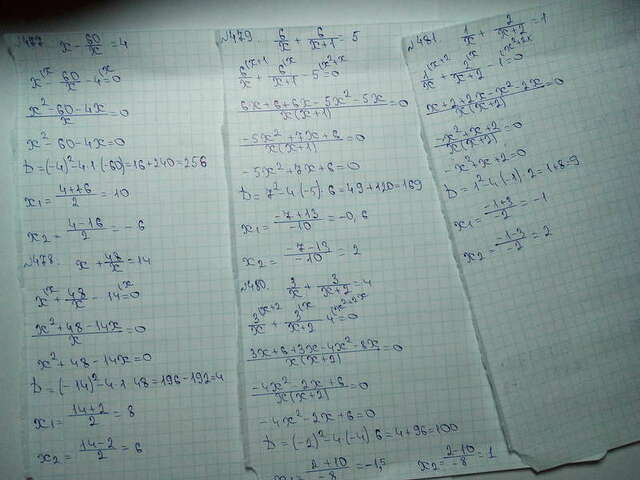 №477  x - 60/x = 4
x^(x - 60/x - 4^(x = 0
x² - 60 - 4x / x = 0
x² - 60 - 4x = 0
D = (-4)² - 4·1·(-60) = 16 + 240 = 256
x₁ = 4+16 / 2 = 10
x₂ = 4-16 / 2 = -6
№478.  x + 48/x = 14
x^(x + 48/x - 14^(x = 0
x² + 48 - 14x / x = 0
x² + 48 - 14x = 0
D = (-14)² - 4·1·48 = 196 - 192 = 4
x₁ = 14+2 / 2 = 8
x₂ = 14-2 / 2 = 6
№479  6/x + 6/x+1 = 5
6^(x+1/x + 6^(x/x+1 - 5^(x²+x = 0
6x + 6 + 6x - 5x² - 5x / x(x+1) = 0
-5x² + 7x + 6 / x(x+1) = 0
-5x² + 7x + 6 = 0
D = 7² - 4·(-5)·6 = 49 + 120 = 169
x₁ = -7+13 / -10 = -0,6
x₂ = -7-13 / -10 = 2
№480.  3/x + 3/x+2 = 4
3^(x+2/x + 3^(x/x+2 - 4^(x²+2x = 0
3x + 6 + 3x - 4x² - 8x / x(x+2) = 0
-4x² - 2x + 6 / x(x+2) = 0
-4x² - 2x + 6 = 0
D = (-2)² - 4·(-4)·6 = 4 + 96 = 100
x₁ = 2+10 / -8 = -1,5  x₂ = 2-10 / -8 = 1
№481  1/x + 2/x+2 = 1
1^(x+2/x + 2^(x/x+2 - 1^(x²+2x = 0
x + 2 + 2x - x² - 2x / x(x+2) = 0
-x² + x + 2 / x(x+2) = 0
-x² + x + 2 = 0
D = 1² - 4·(-1)·2 = 1 + 8 = 9
x₁ = -1+3 / -2 = -1
x₂ = -1-3 / -2 = 2